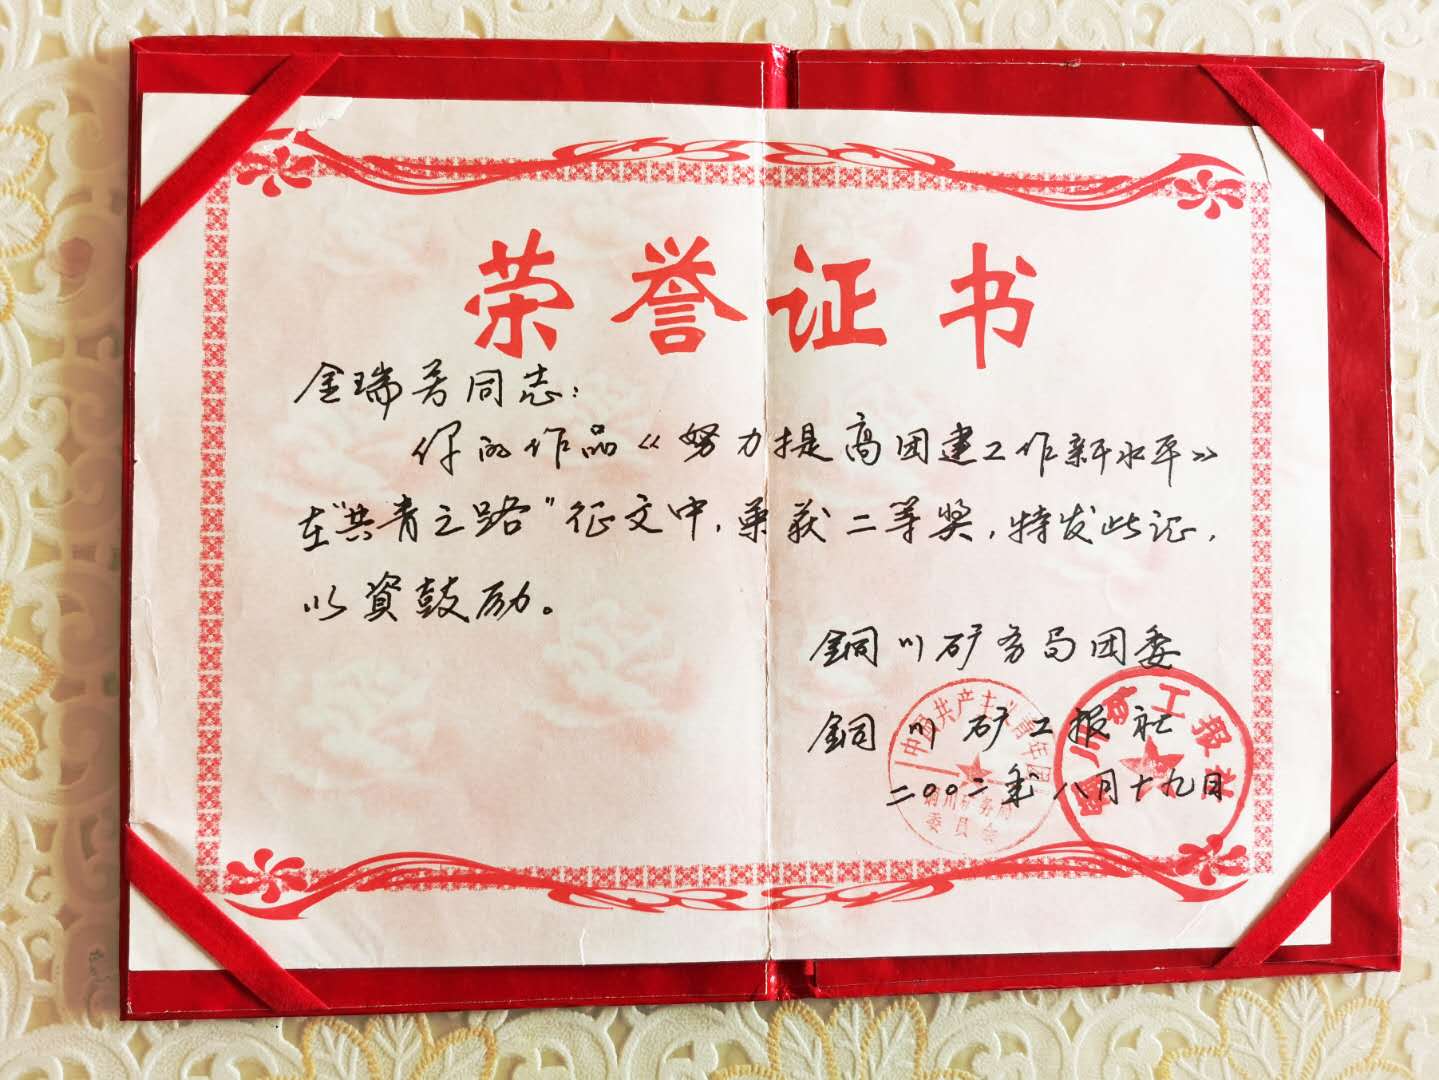 荣誉证书
金瑞芳同志：
你的作品《努力提高团建工作新水平》
在"共青之路"征文中，荣获二等奖，特发此证，
以资鼓励。
銅川矿务局团委
銅川矿工报社
二〇〇二年八月十九日
中国共产主义青年团
铜川矿务局
委员会
铜川矿工报社